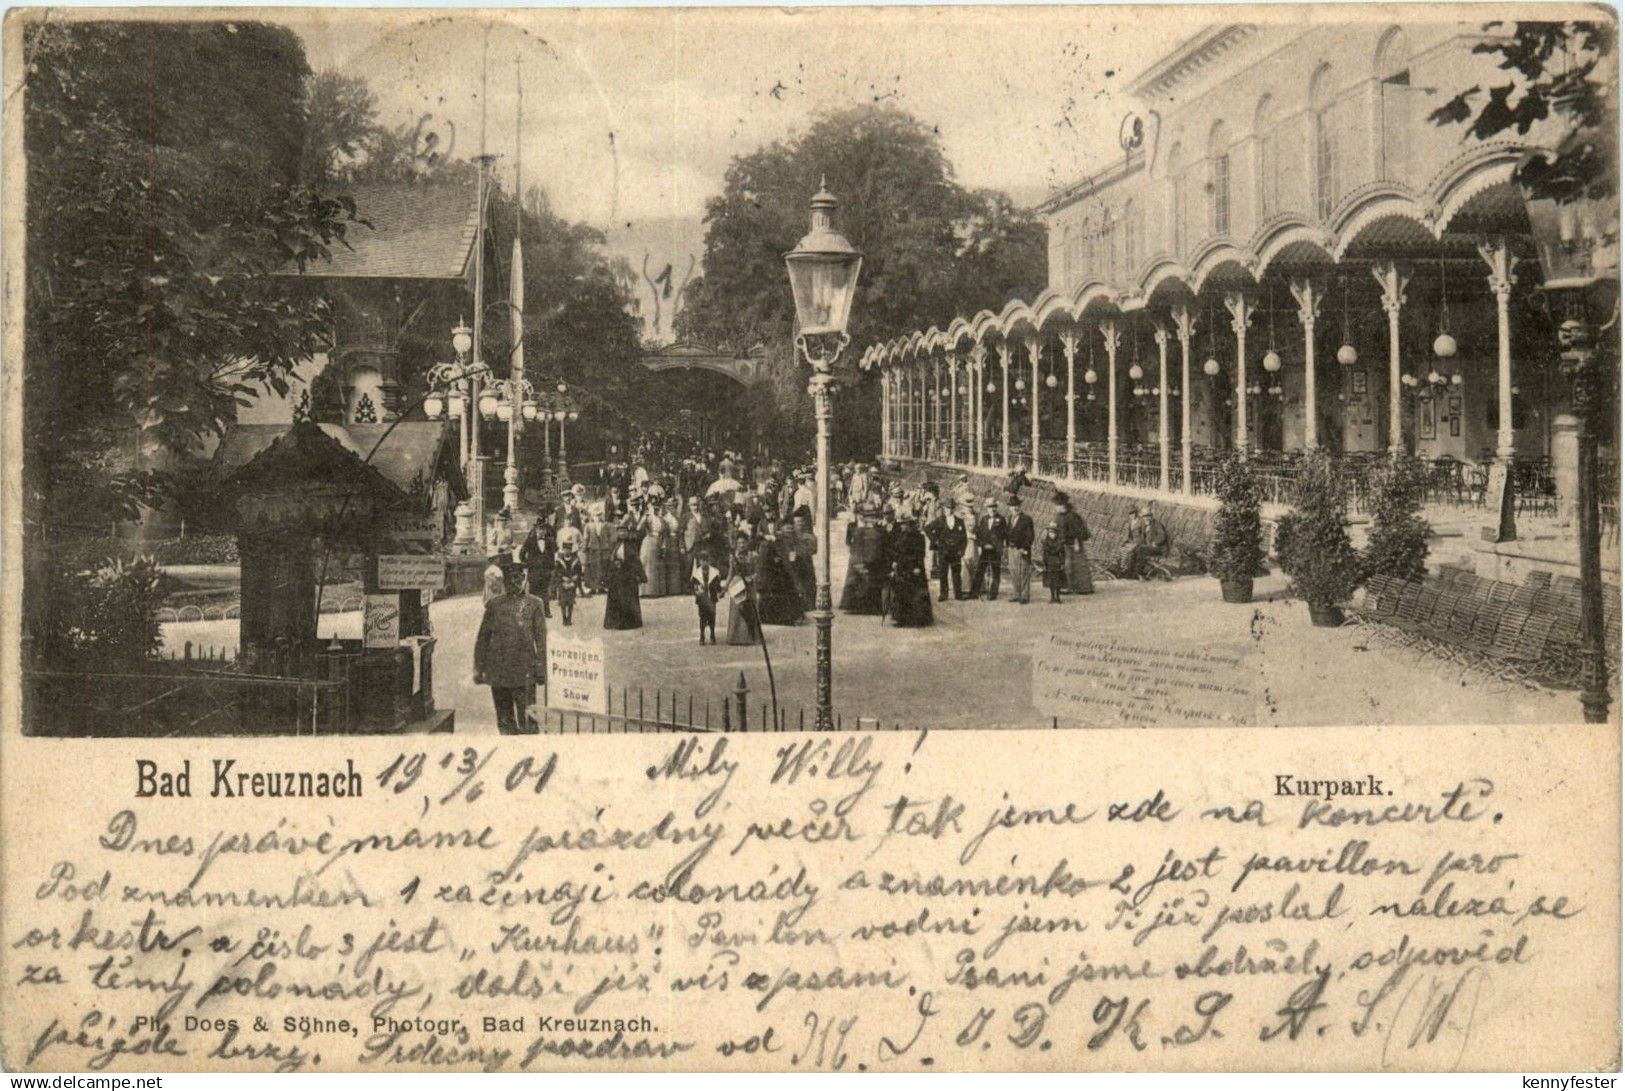 (2)
1
(3)
Kasse.
vorzeigen.
Presenter
Show
Bad Kreuznach 19 13/6 01 Milý Willy!
Kurpark.
Dnes právě máme prázdný večer tak jsme zde na koncertě.
Pod znamenkem 1 začínaji colonády a znaménko 2 jest pavillon pro
orkestr. a číslo 3 jest „Kurhaus“. Pavilon vodní jsem Ti již poslal, nalezá se
za těmy colonády, další již víš z psani. Psani jsme obdržely, odpověd
Ph. Does & Söhne, Photogr. Bad Kreuznach.
přijde brzy. Srdečný pozdrav od M. J. J. D. K. S. A. S. (W)
kennyfester